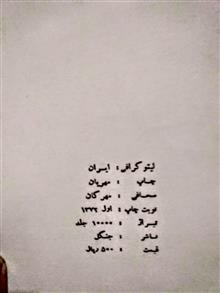 لیتوگرافی : ایران
چاپ : مهربان
صحافی : مهرگان
نوبت چاپ : اول ۱۳۷۲
تیراژ : ۱۰۰۰۰ جلد
ناشر : جنگل
قیمت : ۵۰۰ ریال